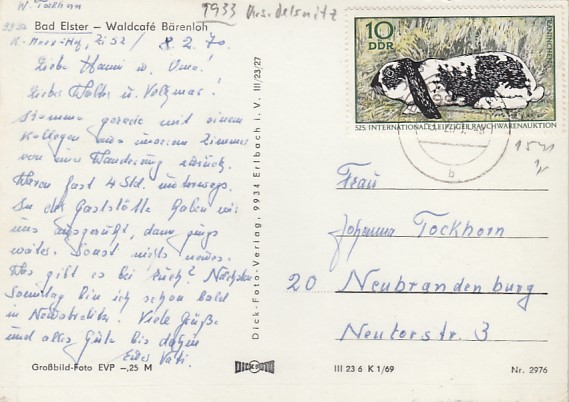 W. Tockhorn
1933
Bad Elster – Waldcafé Bärenloh
8.2.70
Liebe Hanni u. Uma!
Liebe Walter u. Volkmar!
Komme gerade mit einem
Kollegen aus unserem Zimmer
von einer Wanderung zurück.
Waren fast 4 Std. unterwegs.
In der Gaststätte haben wir
uns ausgeruht, dann gings
weiter. Sonst nichts neues.
Was gibt es bei Euch? Nächsten
Sonntag bin ich schon bald
in Neustrelitz. Viele Grüße
und alles Gute bis dahin
Euer Vati.
Großbild-Foto EVP –,25 M
Dick-Foto-Verlag, 9934 Erlbach i. V. III/23/27
DICK FOTO
10
DDR
KANINCHEN
525. INTERNATIONALE LEIPZIGER RAUCHWARENAUKTION
Frau
Johanna Tockhorn
20 Neubrandenburg
Neutorstr. 3
III 23 6 K 1/69
Nr. 2976